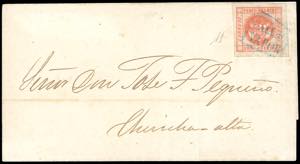 Señor Don Jose F Pequeño.
Chincha-alta.